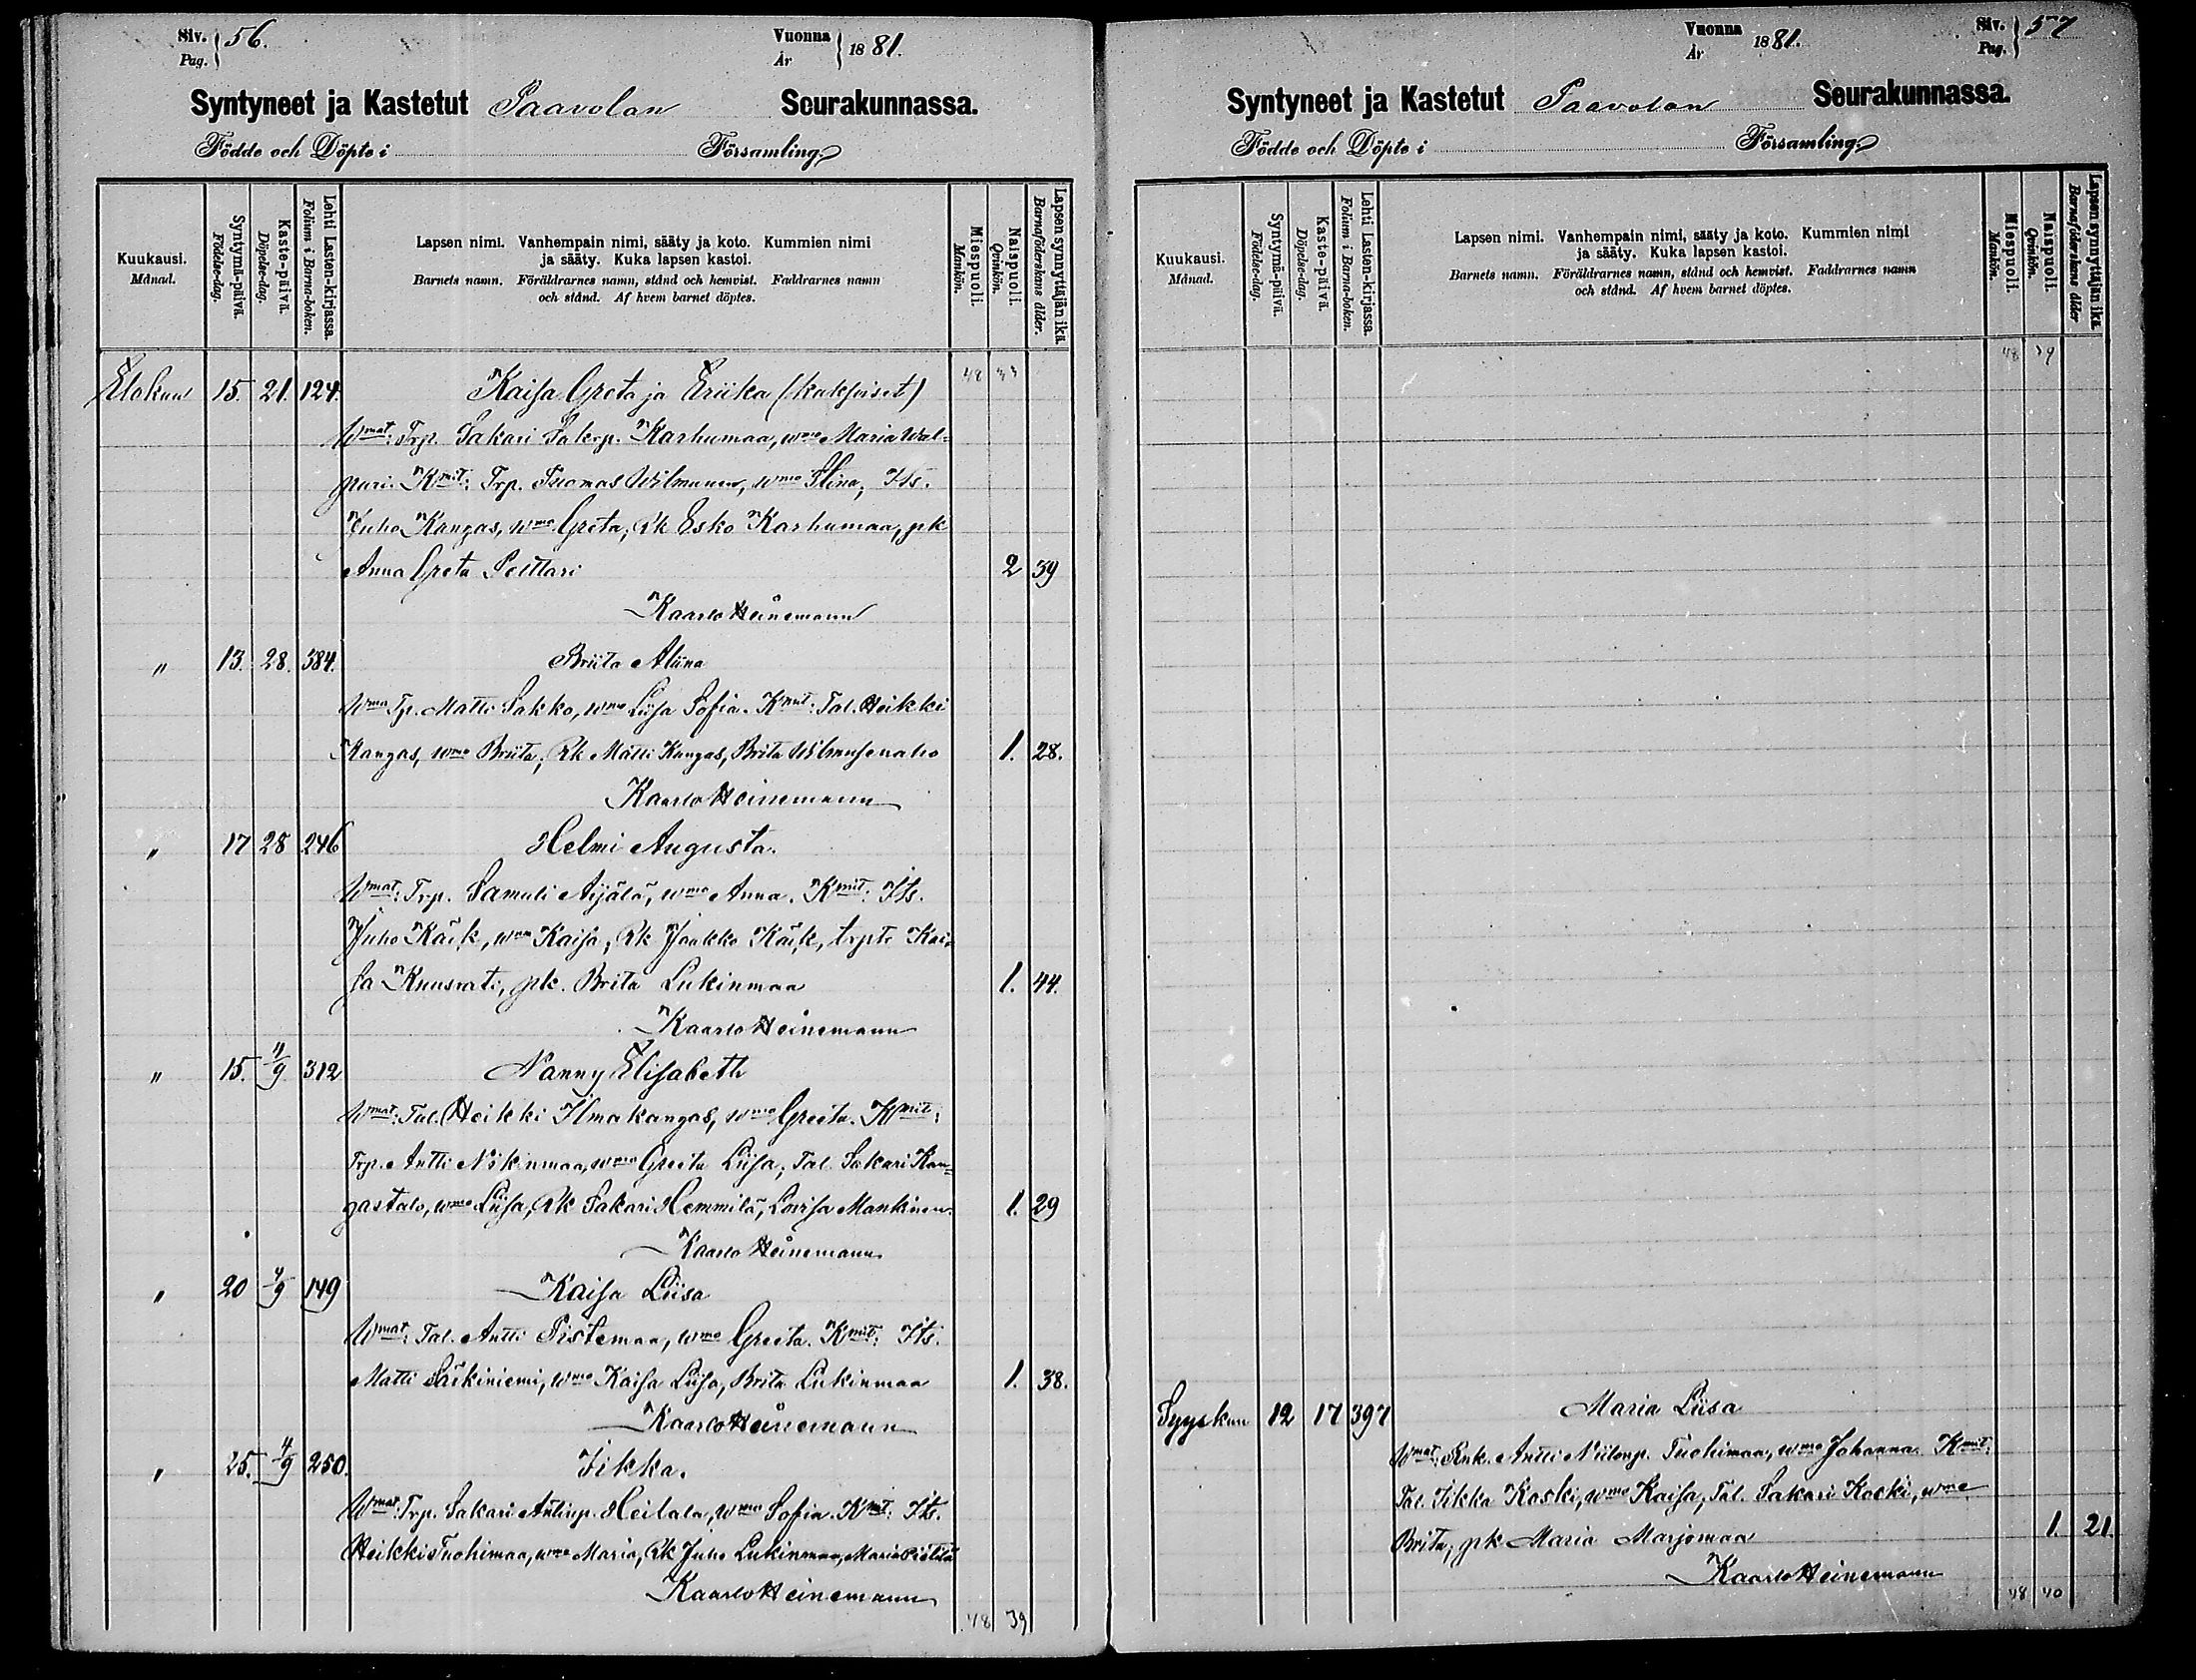 Siv. 56.
Pag.
Vuonna 1881.
År
Syntyneet ja Kastetut Paavolan Seurakunnassa.
Födde och Döpte i Församling
Kuukausi.
Månad.
Syntymä-päivä.
Födelse-dag.
Kaste-päivä.
Döpelse-dag.
Lehti Lasten-kirjassa.
Folium i Barna-boken.
Lapsen nimi. Vanhempain nimi, sääty ja koto. Kummien nimi
ja sääty. Kuka lapsen kastoi.
Barnets namn. Föräldrarnes namn, stånd och hemvist. Faddrarnes namn
och stånd. Af hvem barnet döptes.
Miespuoli.
Mankön.
Naispuoli.
Qvinkön.
Lapsen synnyttäjän ikä
Barnaföderskans ålder.
48 33
Elokuu 15. 21. 124. Kaisa Greta ja Eriika (kaksoiset)
Wmat: Trp. Sakari Sakrp. Karhumaa, wmo Maria Wal-
puri. Kmit: Trp. Tuomas Wilmunen, wmo Stina, Its.
Juho Kangas, wmo Greta, Rk Esko Karhumaa, pk
Anna Greta Peittari 2 39
Kaarlo Heinemann
" 13. 28. 384. Briita Aliina
Wma Tp. Matti Sakko, wmo Liisa Sofia. Kmit: Tal. Heikki
Kangas, wmo Briita, Rk Matti Kangas, Brita Wilmusenaho 1. 28.
Kaarlo Heinemann
" 17 28 246 Helmi Augusta.
Wmat: Trp. Samuli Äijälä, wmo Anna. Kmit: Its.
Juho Käck, wmo Kaisa, Rk Jaakko Käck, trpti Kai-
sa Knusrati, pk. Brita Lukinmaa 1. 44.
Kaarlo Heinemann
" 15. 11/9 312 Nanny Elisabeth
Wmat: Tal. Heikki Ilmakangas, wmo Greeta. Kmit:
Trp. Antti Niikinmaa, wmo Greeta Liisa, Tal. Sakari Kan-
gastalo, wmo Liisa, Rk Sakari Hemmilä, Lovisa Mankinen. 1. 29
Kaarlo Heinemann
" 20 4/9 149 Kaisa Liisa
Wmat: Tal. Antti Pistemaa, wmo Greeta. Kmit: Its.
Matti Särkiniemi, wmo Kaisa Liisa, Brita Lukinmaa 1. 38.
Kaarlo Heinemann
" 25. 4/9 250. Iikka.
Wmat: Trp. Sakari Antinp. Heilala, wmo Sofia. Kmit: Its.
Heikki Tuohimaa, wmo Maria, Rk Juho Lukinmaa, Maria
Kaarlo Heinemann
48 39
Vuonna 1881.
År
Siv. 57
Pag.
Syntyneet ja Kastetut Paavolan Seurakunnassa.
Födde och Döpte i Församling
Kuukausi.
Månad.
Syntymä-päivä.
Födelse-dag.
Kaste-päivä.
Döpelse-dag.
Lehti Lasten-kirjassa.
Folium i Barna-boken.
Lapsen nimi. Vanhempain nimi, sääty ja koto. Kummien nimi
ja sääty. Kuka lapsen kastoi.
Barnets namn. Föräldrarnes namn, stånd och hemvist. Faddrarnes namn
och stånd. Af hvem barnet döptes.
Miespuoli.
Mankön.
Naispuoli.
Qvinkön.
Lapsen synnyttäjän ikä
Barnaföderskans ålder
48 39
Syyskuu 12 17 397 Maria Liisa
Wmat: Antti Niilonp. Tuohimaa, wmo Johanna. Kmit:
Tal. Iikka Koski, wmo Kaisa, Tal. Sakari Koski, wmo
Brita, pk Maria Marjomaa 1. 21.
Kaarlo Heinemann
48 40